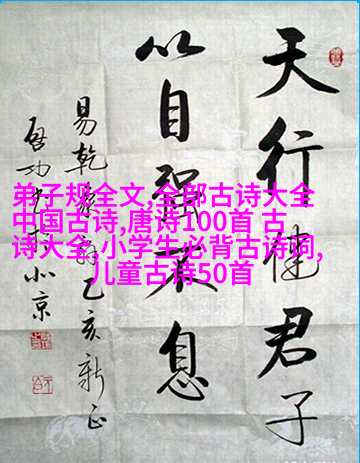 天行健君子
以自強不息
易乾 乙亥新正
啟功 北京
弟子规全文,全部古诗大全
中国古诗,唐诗100首 古
诗大全,小学生必背古诗词,
儿童古诗50首